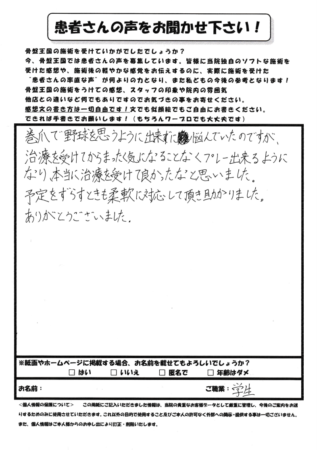 患者さんの声をお聞かせ下さい！
骨盤王国の施術を受けていかがでしたでしょうか？
今、骨盤王国では患者さんの声を募集しています。皆様に当院独自のソフトな施術を
受けた感想や、施術後の軽やかな感覚をお伝えするのに、実際に施術を受けた
“患者さんの率直な声”が何よりの力となり、また私どもの今後の参考となります！
骨盤王国の施術をうけての感想、スタッフの印象や院内の雰囲気
他店との違いなど何でもありですのでお気づきの事をお寄せください。
感想文の書き方は一切自由です！文でも似顔絵でもご自由にお書きください。
できれば手書きでお願いします！（もちろんワープロでも大丈夫です）
巻爪で野球を思うように出来ずに悩んでいたのですが、
治療を受けてからまったく気になることなくプレー出来るように
なり、本当に治療を受けて良かったなと思いました。
予定をずらすときも柔軟に対応して頂き助かりました。
ありがとうございました。
※紙面やホームページに掲載する場合、お名前を載せてもよろしいでしょうか？
□ はい □ いいえ □ 匿名で □ 年齢はダメ
お名前： ご職業：学生
＜個人情報の保護について＞ この掲載にご記入いただきました情報は、当院の貴重なお客様データとして厳重に管理し、今後のご案内をお送
りするためのみに使用させていただきます。これ以外の目的で使用すること及びご本人の許可なく外部への開示・提供する事は一切ございません。
また、個人情報はご本人様からのお申し出により訂正・削除いたします。